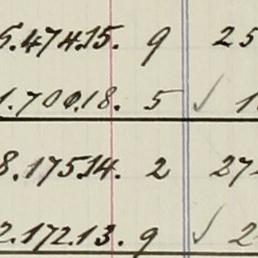 5.474.15. 9 25
1.700.18. 5 ✓ 1
8.175.14. 2 27
2.172.13. 9 ✓ 2